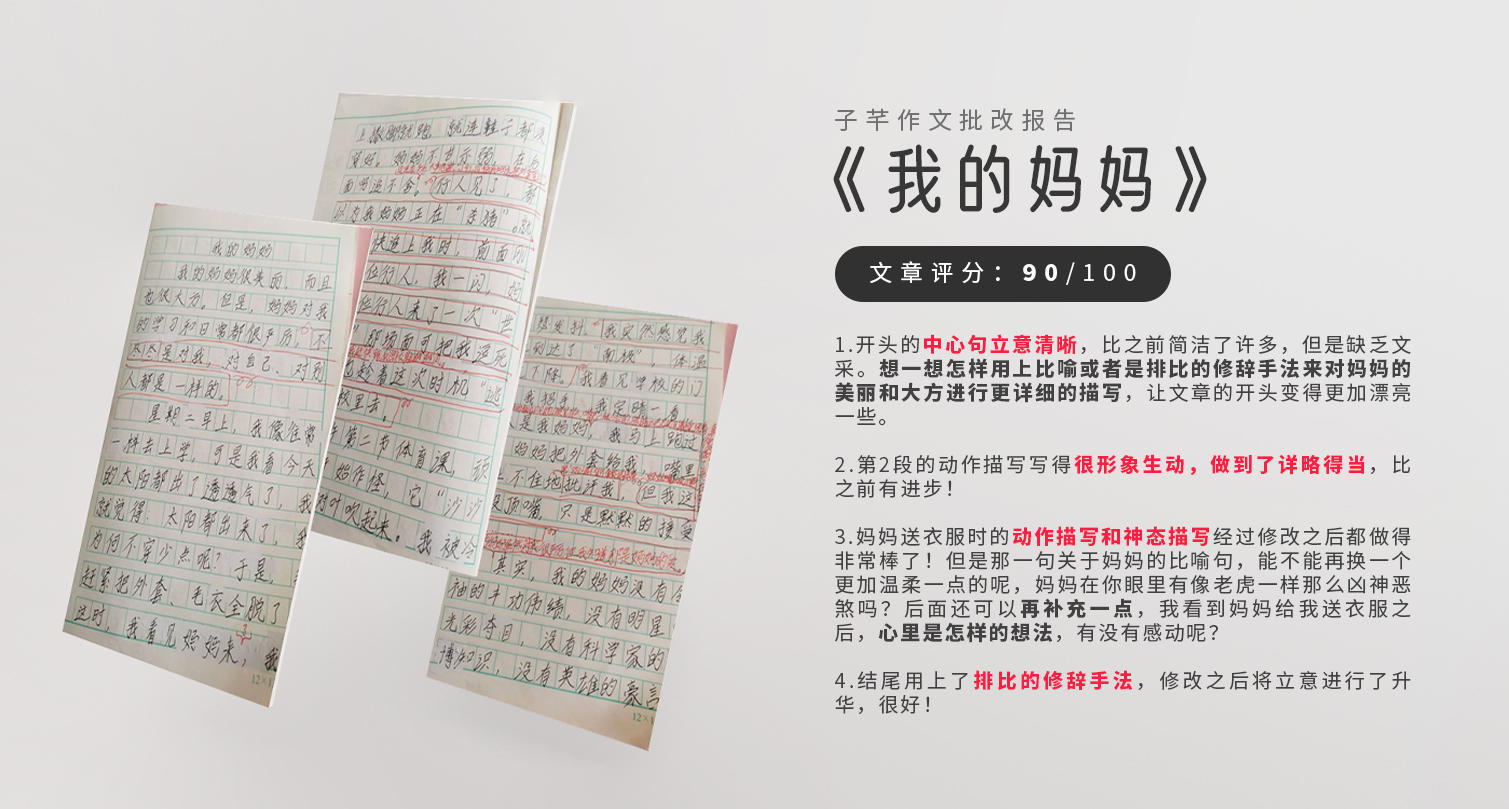 我的妈妈
我的妈妈很美丽，而且
也很大方。但是，妈妈对我
的学习和日常都很严厉。不
只是对我，对自己、对别
人都是一样的。
星期二早上，我像往常
一样去上学，可是我看今天
的太阳都出了透透气了，我
就觉得：太阳都出来了，我
为何不穿少点呢？于是，
赶紧把外套、毛衣全脱了
这时，我看见妈妈来，我
12×1
上撒脚就跑，就连鞋子都没
穿好。妈妈不甘示弱，在后
面穷追不舍。行人见了，都
以为我妈妈正在“杀猪”。就
快追上我时，前面
位行人，我一闪，妈
位行人来了一次“
那场面可把我逗死
趁着这次时机“逃
校里去。
第二节体育课，
始作怪，它“沙沙
对叶吹起来。我被冷
我突然感觉我
到达了“南极”，体温
下降。我看见学校的门
我招手，我定睛一看，
是我妈妈，我马上跑过
妈妈把外套给我，嘴里
不住地批评我，但我这
没顶嘴，只是默默的接受
其实，我的妈妈没有
袖的丰功伟绩，没有明星
光彩夺目，没有科学家的
博知识，没有英雄的豪言
12×1
子芊作文批改报告
《我的妈妈》
文章评分：90/100
1.开头的中心句立意清晰，比之前简洁了许多，但是缺乏文
采。想一想怎样用上比喻或者是排比的修辞手法来对妈妈的
美丽和大方进行更详细的描写，让文章的开头变得更加漂亮
一些。
2.第2段的动作描写写得很形象生动，做到了详略得当，比
之前有进步！
3.妈妈送衣服时的动作描写和神态描写经过修改之后都做得
非常棒了！但是那一句关于妈妈的比喻句，能不能再换一个
更加温柔一点的呢，妈妈在你眼里有像老虎一样那么凶神恶
煞吗？后面还可以再补充一点，我看到妈妈给我送衣服之
后，心里是怎样的想法，有没有感动呢？
4.结尾用上了排比的修辞手法，修改之后将立意进行了升
华，很好！